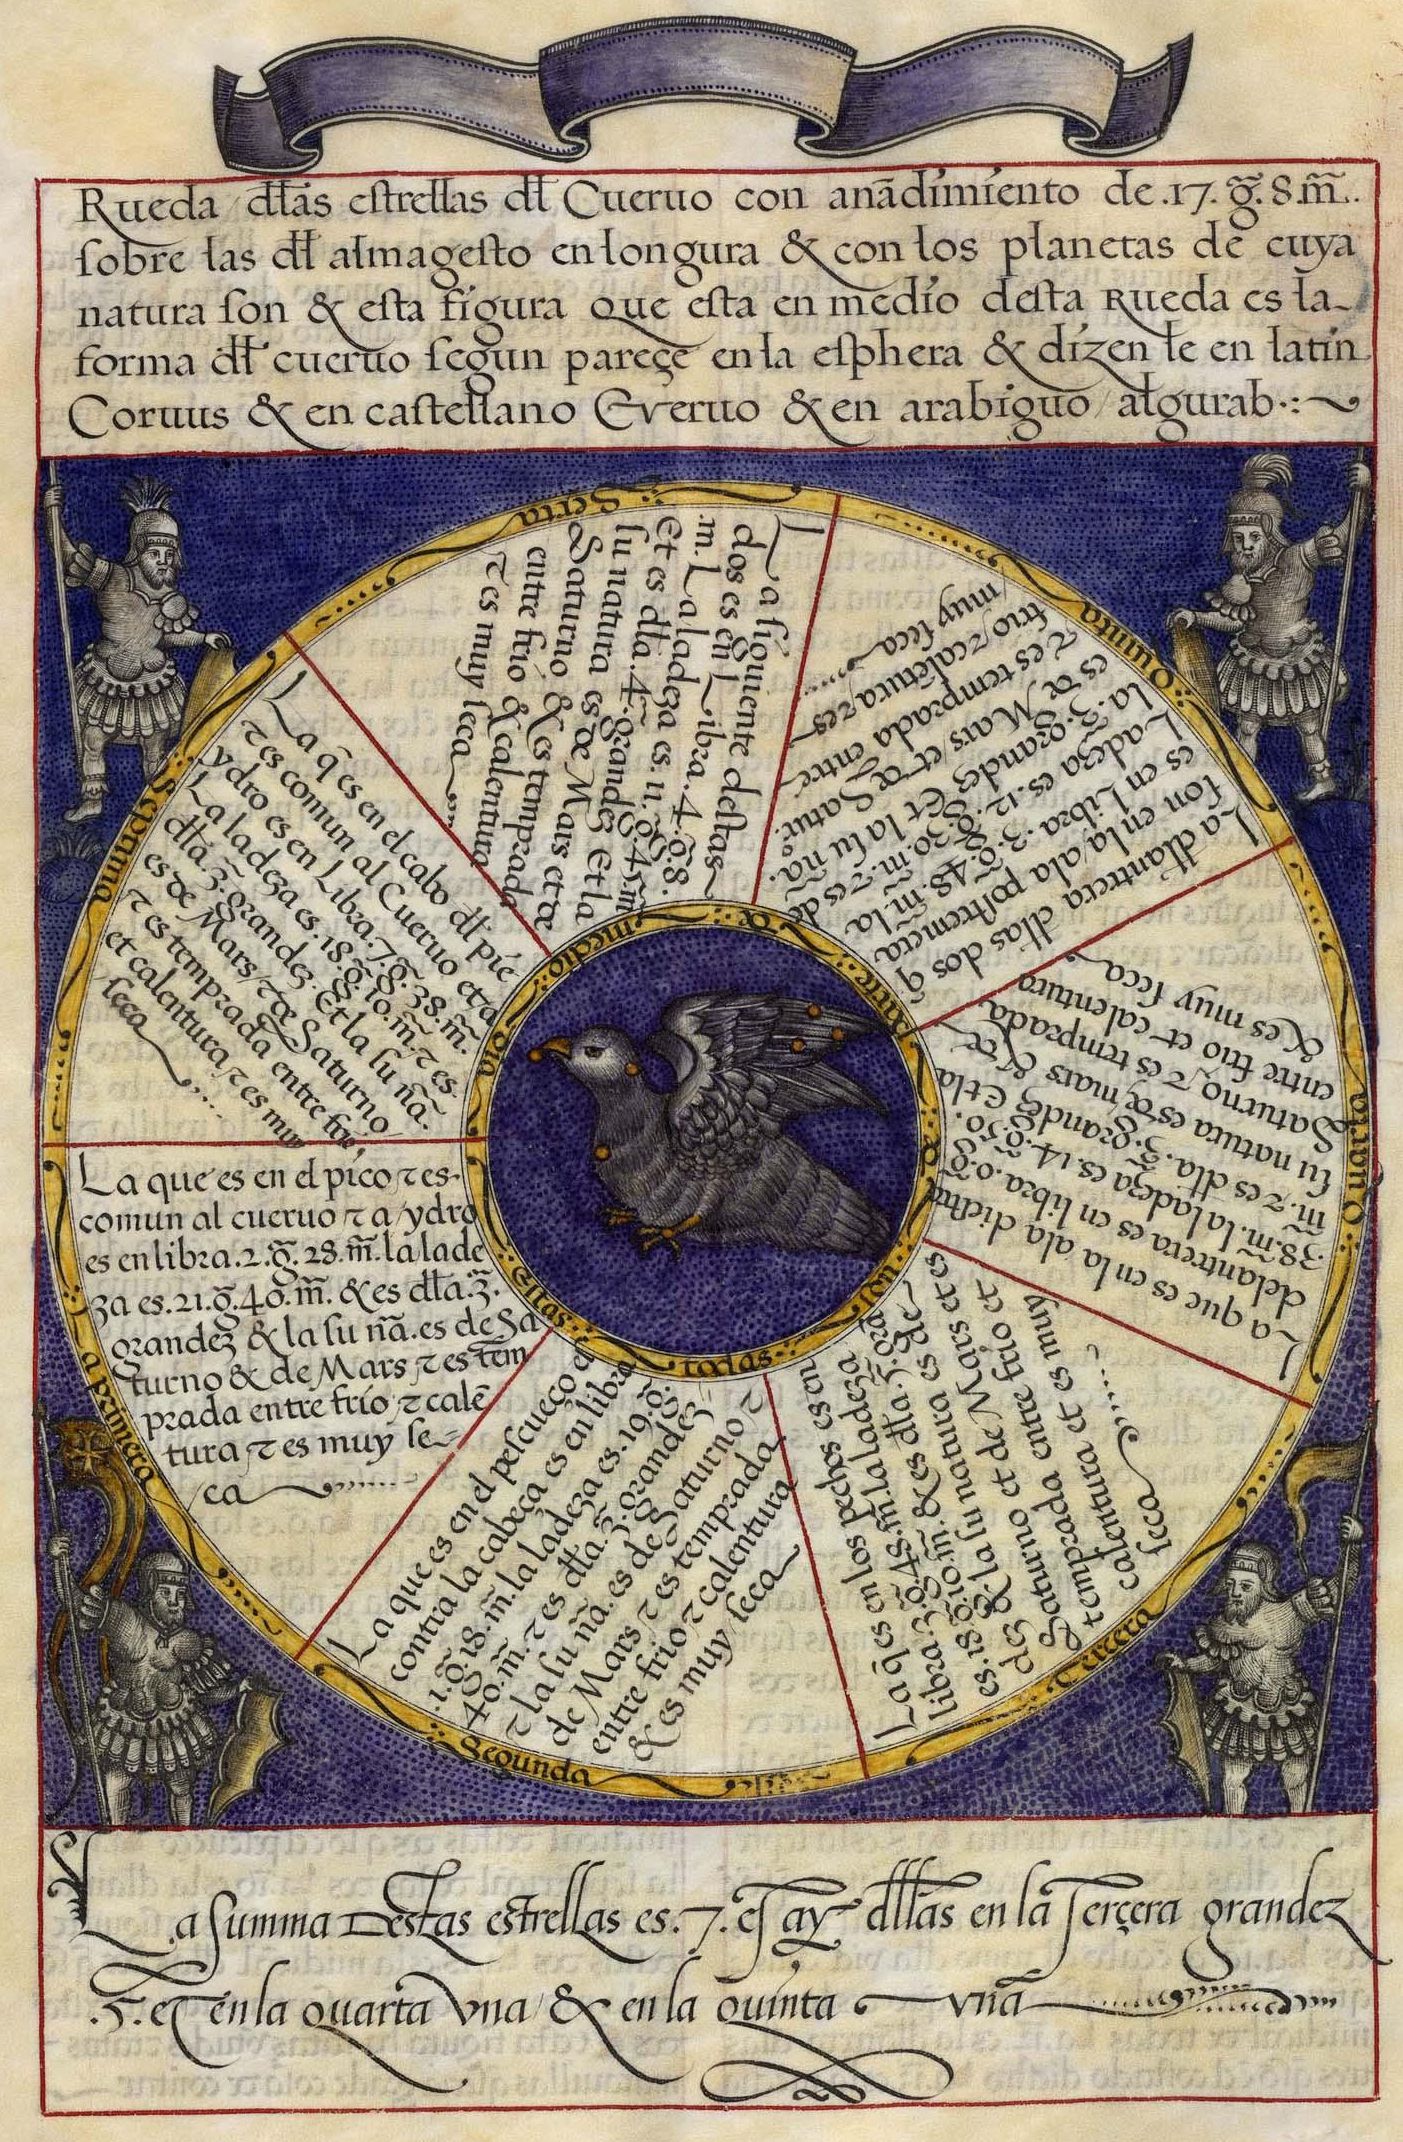 Rueda dłłas estrellas dłł Cueruo con anãdimiento de .17. g̃. 8. m̃.
sobre las dłł almagesto en longura & con los planetas de cuya
natura son & esta figura que esta en medio desta Rueda es la
forma dłł cueruo segun pareçe en la esphera & dizen le en latin
Coruus & en castellano Cueruo & en arabiguo algurab
a primera
La que es en el pico ⁊ es
comun al cueruo ⁊ a ydro
es en libra .2. g̃. 28. m̃. la lade
za es .21. g̃. 40. m̃. & es dłła .3.
grandez & la su ña. es de Sa
turno & de Mars ⁊ es tem
prada entre frio ⁊ calẽ
tura ⁊ es muy se
ca
Segunda
La que es en el pescueço en
contra la cabeça es en libra
.1. g̃. 18. m̃. la ladeza es .19. g̃.
40. m̃. ⁊ es dłła .3. grandez
⁊ la su ña. es de Saturno ⁊
de Mars ⁊ es temprada
entre frio ⁊ calentura
& es muy seca
Tercera
La q̃ es en los pechos es en
libra .3. g̃. 48. m̃. la ladeza
es .18. g̃. 10. m̃. & es dłła .5. grã
dez & la su natura es de
Saturno et de Mars et es
temprada entre frio et
calentura et es muy
seca
Quarta
La que es en la ala diestra
delantrera es en libra .0. g̃.
38. m̃. la ladeza es .14. g̃. 50.
m̃. ⁊ es dłła .3. grandez Et la
su natura es de mars & de
Saturno ⁊ es temprada
entre frio et calentura
& es muy seca
Quinta
La dłantrera dłłas dos q̃
son en la ala postremera
es en Libra .3. g̃. 48. m̃. la
Ladeza es .12. g̃. 30. m̃. ⁊ es de
la .3. grandez Et la su ña.
es de Mars et de Satur.
⁊ es temprada entre
frio ⁊ calẽtura ⁊ es
muy seca
Serta
La siguiente destas
dos es en Libra .4. g̃. 8.
m. La ladeza es .11. g̃. 45. m̃
Et es dłła .4. grandez Et la
su natura es de Mars et de
Saturno & es temprada
entre frio & calentura
⁊ es muy seca
Septima
La q̃ es en el cabo dłł pie
⁊ es comun al Cueruo et a
ydro es en Libra .7. g̃. 38. m̃.
La ladeza es .18. g̃. 10. m̃. ⁊ es
dłła .3. grandez. Et la su ña.
es de Mars, ⁊ de Saturno
⁊ es temprada entre frio
et calentura, ⁊ es muy
seca
todas
parte de
medio
La summa Destas estrellas es .7. est ay dłłas en la Terçera grandez
.5. et en la quarta vna & en la quinta vna